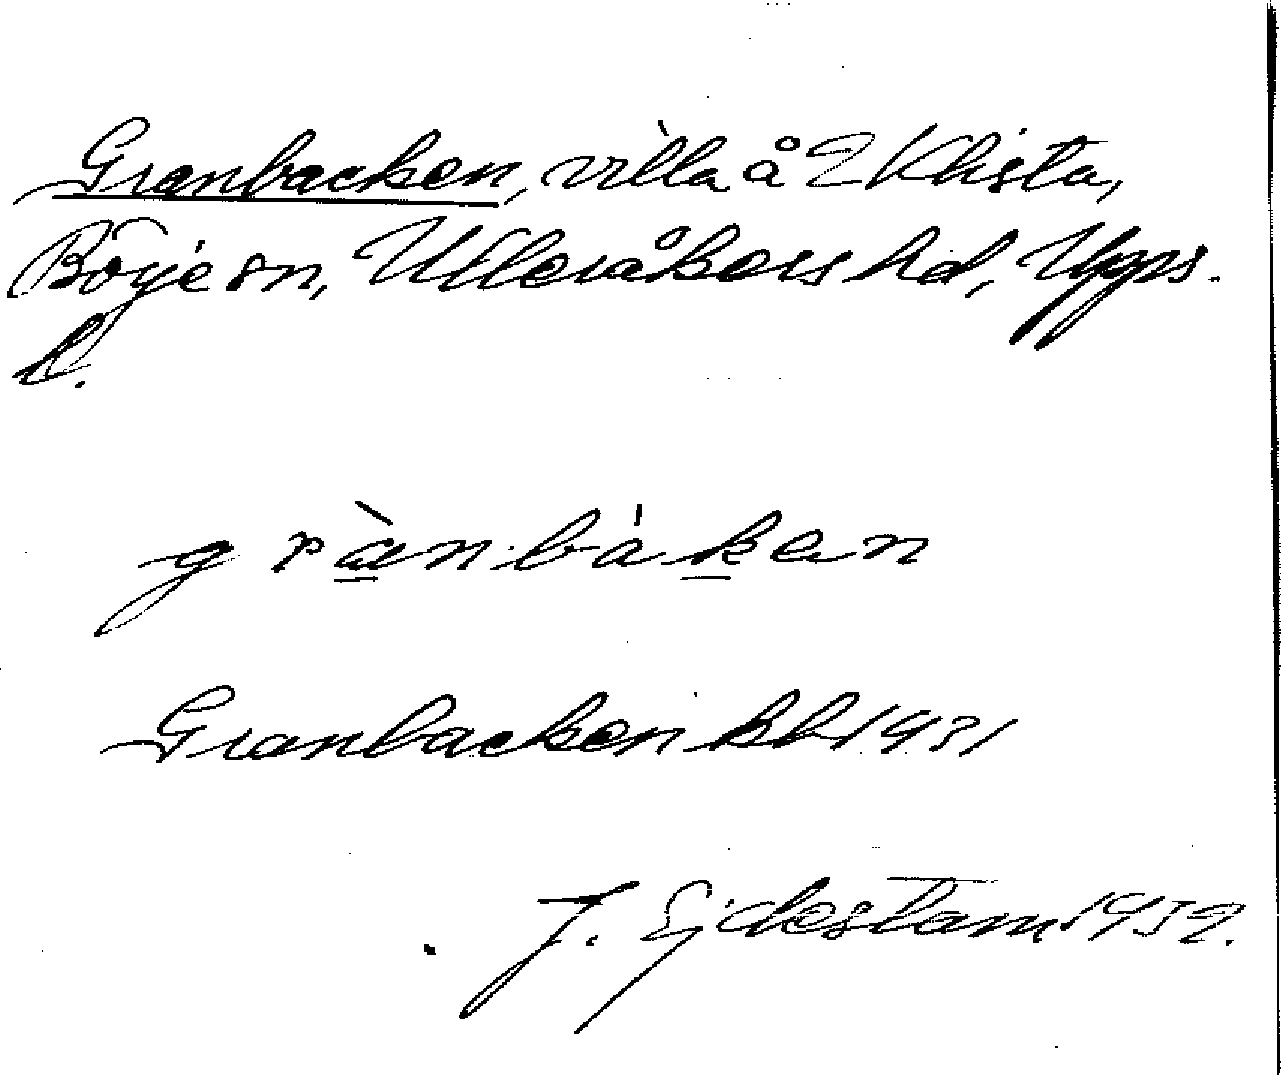 Granbacken, villa å 2 Klista,
Börje sn, Ulleråkers hd, Upps.
l.
grànbáken
Granbacken kbl 1931
J. Ejdestam 1952.